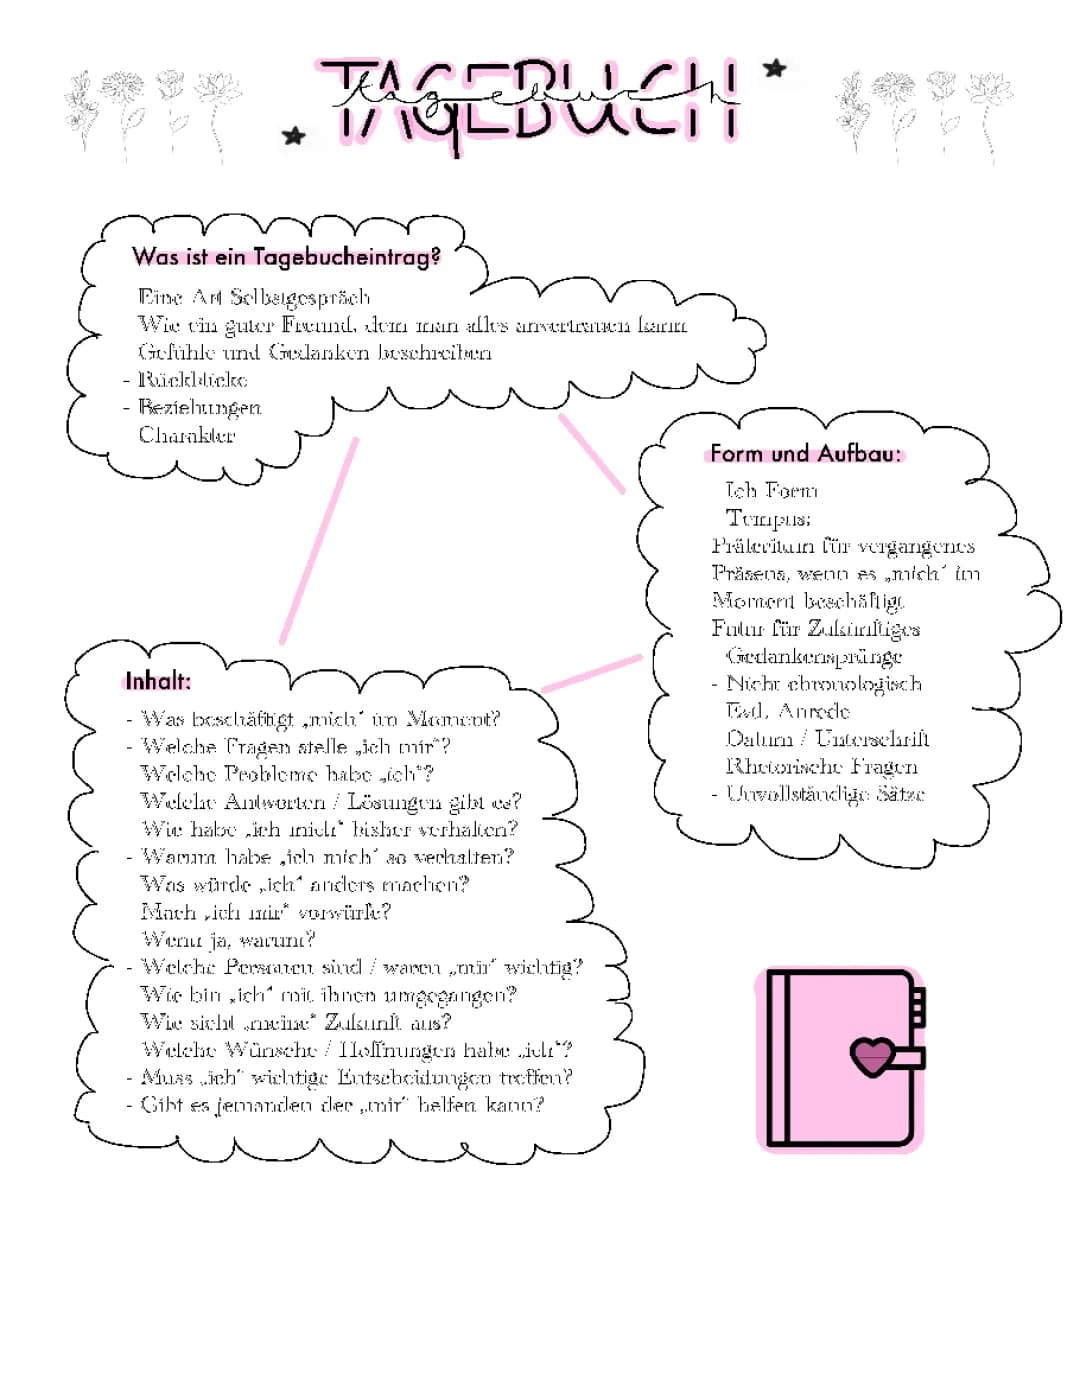 TAGEBUCH
tagebuch
Was ist ein Tagebucheintrag?
Eine Art Selbstgespräch
Wie ein guter Freund, dem man alles anvertrauen kann
Gefühle und Gedanken beschreiben
- Rückblicke
- Beziehungen
Charakter
Form und Aufbau:
Ich Form
Tempus:
Präteritum für vergangenes
Präsens, wenn es „mich“ im
Moment beschäftigt
Futur für Zukünftiges
Gedankensprünge
- Nicht chronologisch
Evtl. Anrede
Datum / Unterschrift
Rhetorische Fragen
- Unvollständige Sätze
Inhalt:
- Was beschäftigt „mich“ im Moment?
- Welche Fragen stelle „ich mir“?
Welche Probleme habe „ich“?
Welche Antworten / Lösungen gibt es?
Wie habe „ich mich“ bisher verhalten?
- Warum habe „ich mich“ so verhalten?
Was würde „ich“ anders machen?
Mach „ich mir“ vorwürfe?
Wenn ja, warum?
- Welche Personen sind / waren „mir“ wichtig?
Wie bin „ich“ mit ihnen umgegangen?
Wie sieht „meine“ Zukunft aus?
Welche Wünsche / Hoffnungen habe „ich“?
- Muss „ich“ wichtige Entscheidungen treffen?
- Gibt es jemanden der „mir“ helfen kann?